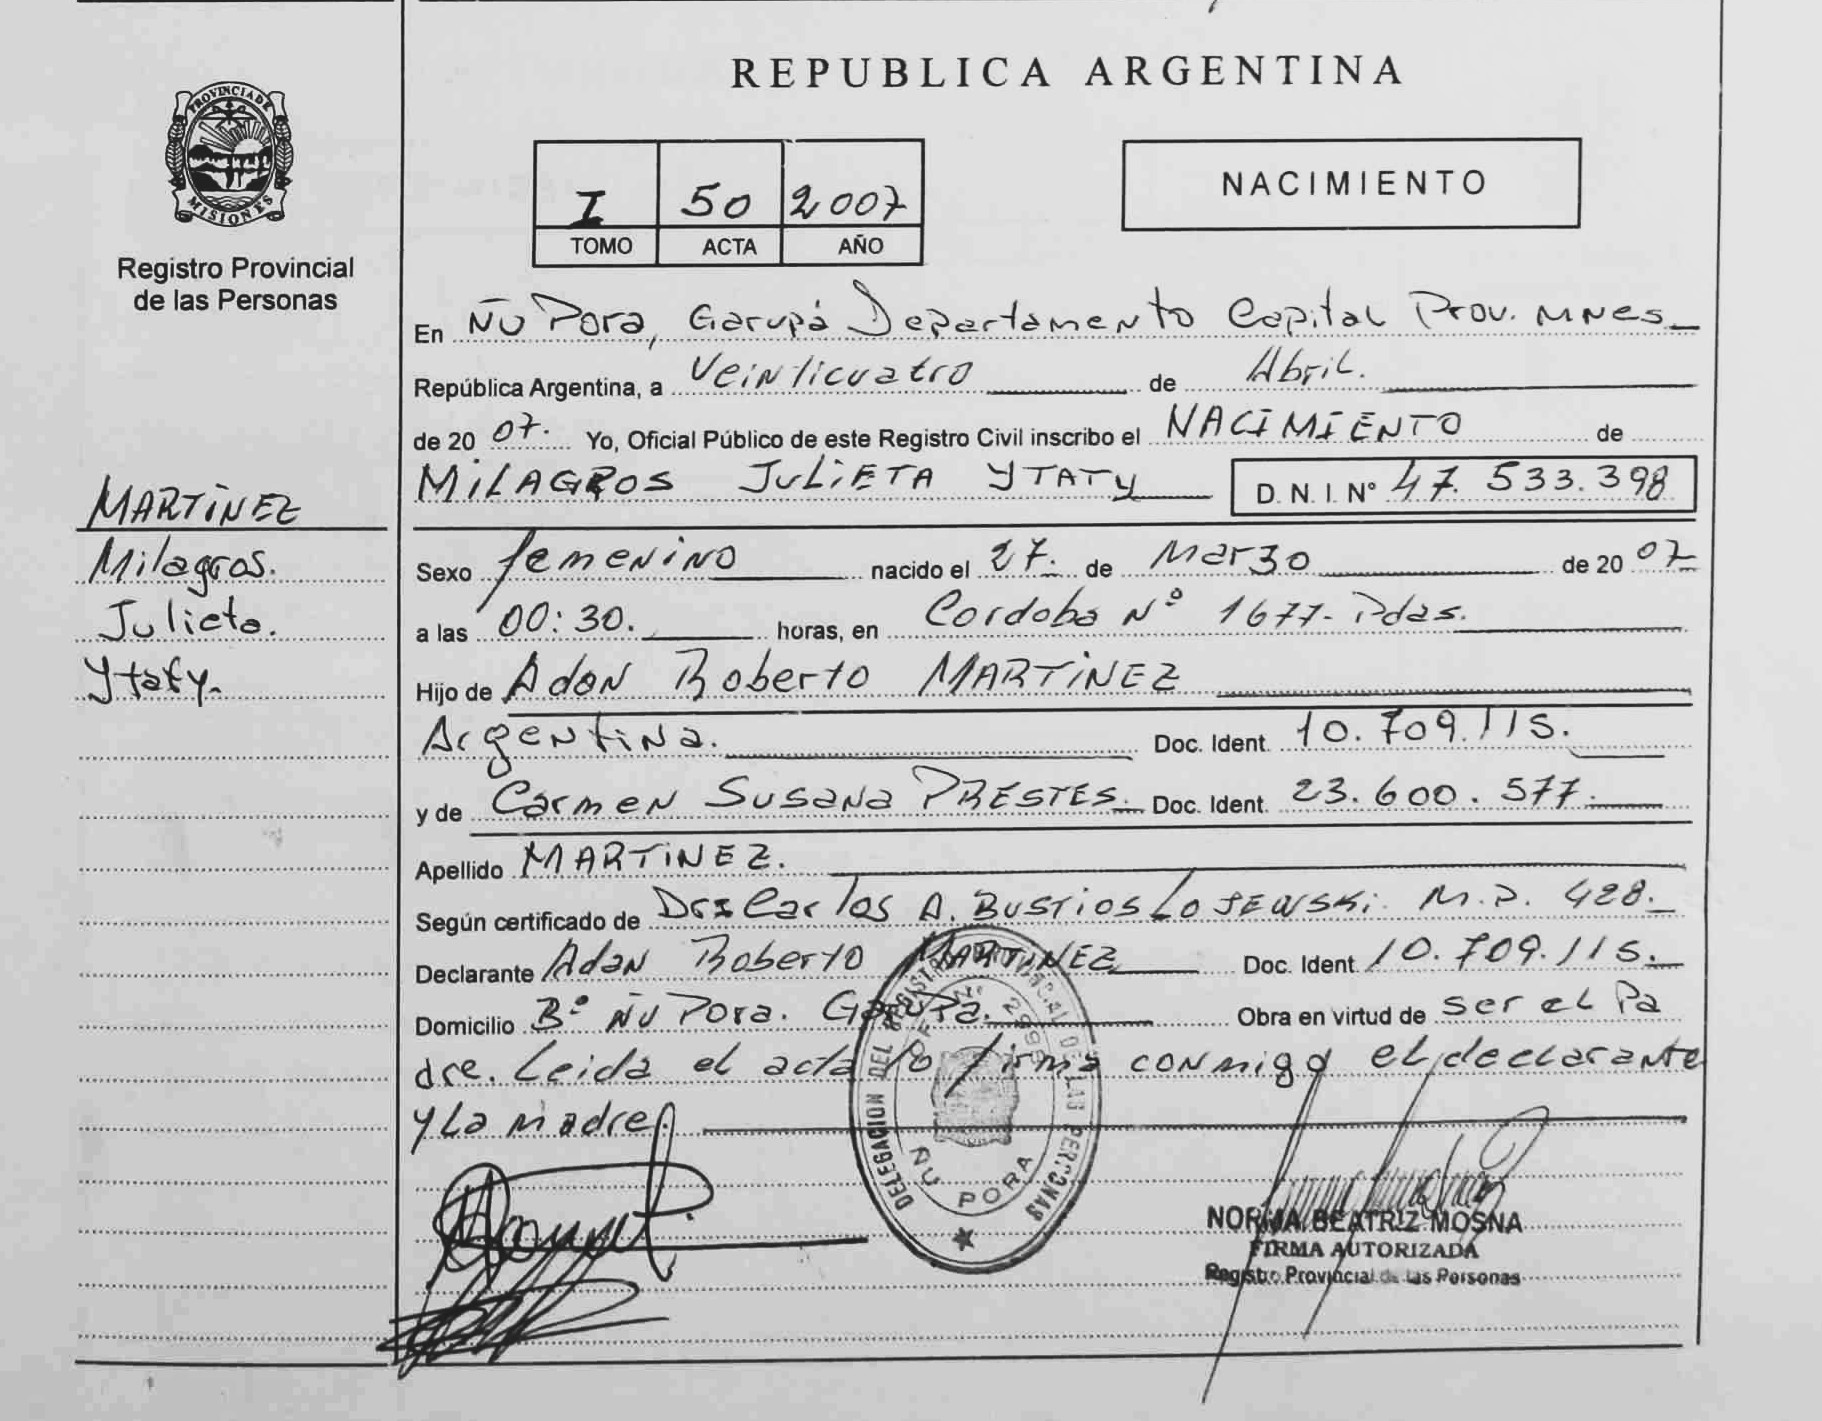 REPUBLICA ARGENTINA
PROVINCIA DE MISIONES
Registro Provincial
de las Personas
I 50 2007
TOMO ACTA AÑO
NACIMIENTO
En Ñu Pora, Garupá Departamento Capital Prov. Mnes
República Argentina, a Veinticuatro de Abril.
de 20 07. Yo, Oficial Público de este Registro Civil inscribo el NACIMIENTO de
MILAGROS JULIETA YTATY D. N. I. N° 47.533.398
MARTINEZ
Milagros.
Julieta.
Ytaty.
Sexo femenino nacido el 27. de Marzo de 20 07
a las 00:30. horas, en Cordoba Nº 1677- Pdas.
Hijo de Adan Roberto MARTINEZ
Argentina. Doc. Ident. 10.709.115.
y de Carmen Susana PRESTES. Doc. Ident. 23.600.577.
Apellido MARTINEZ.
Según certificado de Carlos A. BUSTIOS LOJEWSKI. M.P. 428.
Declarante Adan Roberto MARTINEZ Doc. Ident 10.709.115.
Domicilio Bº Ñu Pora. Garupa. Obra en virtud de ser el Pa
dre. Leida el acta lo firma conmigo el declarante
y La madre.
DELEGACION DEL REGISTRO PROVINCIAL DE LAS PERSONAS
ÑU PORA
NORMA BEATRIZ MOSNA
FIRMA AUTORIZADA
Registro Provincial de las Personas